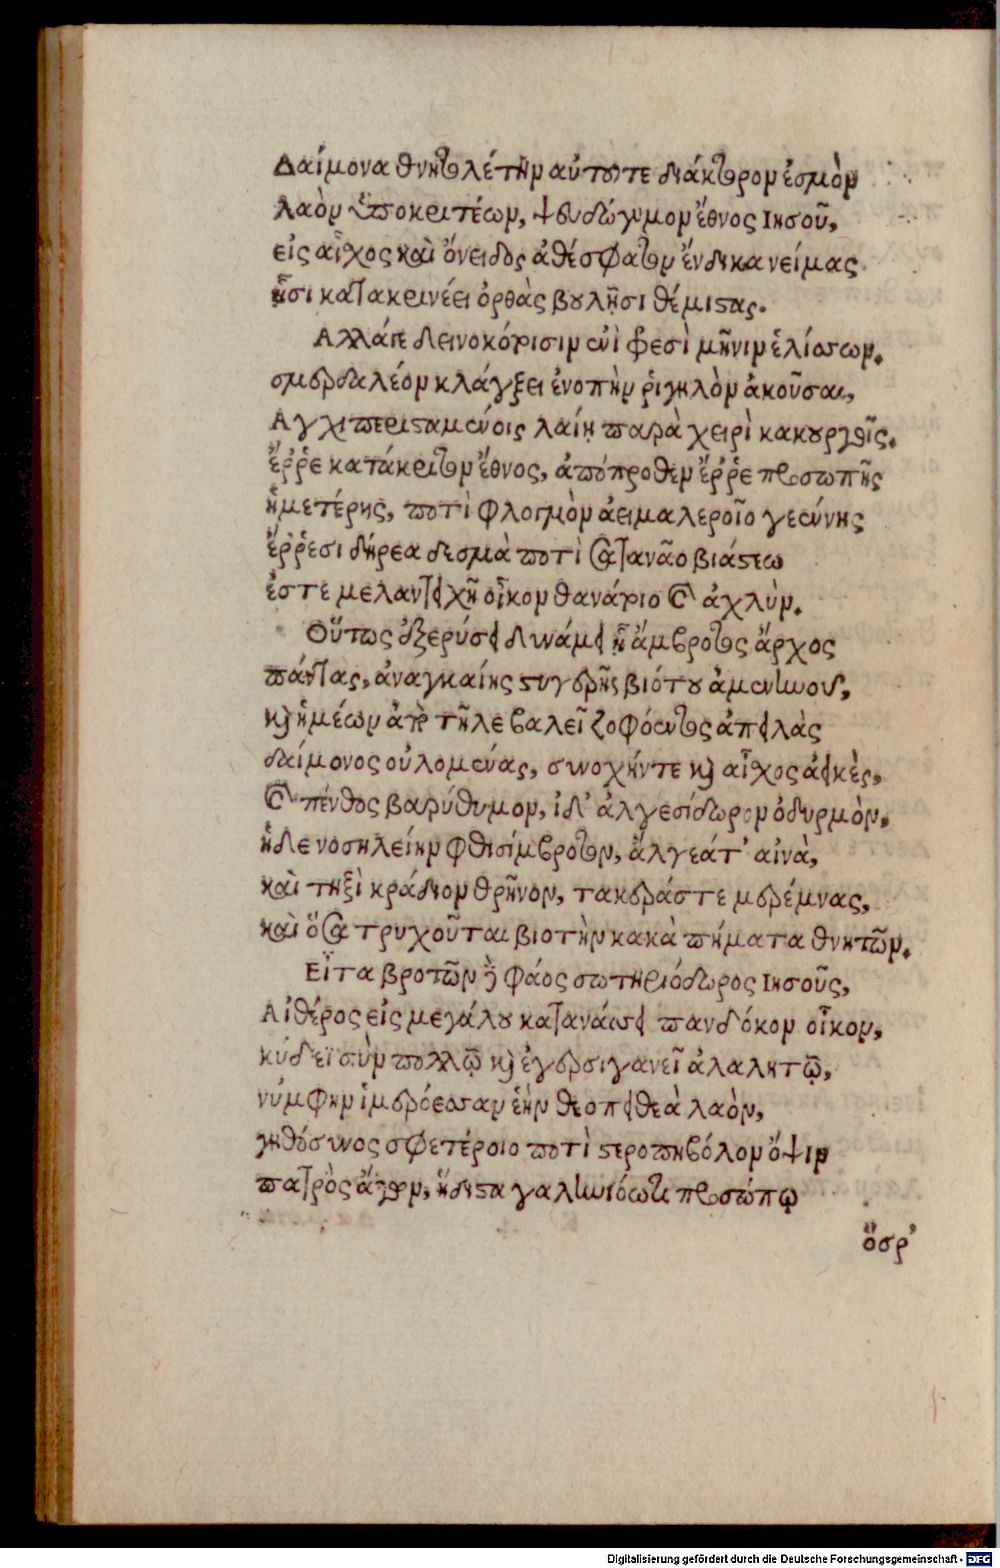 Δαίμονα θνητολέτην αὐτοῦ τε διάκτορον ἑσμὸν
λαὸν ὑποκριτέων, ψευδώνυμον ἔθνος Ιησοῦ,
εἰς αἶχος καὶ ὄνειδος ἀθέσφατον ἔνδικα νείμας
ᾗσι κατακρινέει ὀρθὰς βουλῇσι θέμιστας.
Αλλά γε δεινοκόρισιν ἐνὶ φρεσὶ μῆνιν ἑλίσσων.
σμερδαλέον κλάγξει ἐνοπὴν ῥιγηλὸν ἀκοῦσαι,
Αγχιπερισταμένοις λαίῃ παρὰ χειρὶ κακούργοις.
ἔῤῥε κατάκριτον ἔθνος, ἀπόπροθεν ἔῤῥε προσωπῆς
ἡμετέρης, ποτὶ φλογμὸν ἀειμαλεροῖο γεένης
ἔῤῥεσι δήρεα δεσμὰ ποτὶ σατανᾶο βιάστεω
ἔστε μελαντειχῆ οἶκον θανάσιο καὶ ἀχλὺν.
Οὕτως ἐξερύσει δυνάμει ᾗ ἄμβροτος ἄρχος
πάντας, ἀναγκαίης στυγερῆς βιότου ἀμενηνοῦ,
καὶ ἡμέων ἀπὸ τῆλε βαλεῖ ζοφόεντος ἀπειλὰς
δαίμονος οὐλομένας, συνοχήν τε καὶ αἶχος ἀεικὲς,
καὶ πένθος βαρύθυμον, ἰδ' ἀλγεσίδωρον ὀδυρμὸν,
ἠδὲ νοσηλείην φθισίμβροτον, ἄλγεά τ' αἰνὰ,
καὶ τηξικράδιον θρῆνον, τακεράς τε μερέμνας,
καὶ ὅσα τρυχοῦται βιοτὴν κακὰ πήματα θνητῶν.
Εἶτα βροτῶν τὸ φάος σωτηριόδωρος Ιησοῦς,
Αἰθέρος εἰς μεγάλου καταναίσσει πανδόκον οἶκον,
κύδεϊ σὺν πολλῷ καὶ ἐγερσιγανεῖ ἀλαλητῷ,
νύμφην ἱμερόεσσαν ἑὴν θεοπειθεὰ λαὸν,
γηθόσυνος σφετέροιο ποτὶ στεροπηβόλον ὄψιν
πατρὸς ἄγων, ἥδιστα γαληνιόωντι προσώπῳ
ὅσρ'
Digitalisierung gefördert durch die Deutsche Forschungsgemeinschaft - DFG